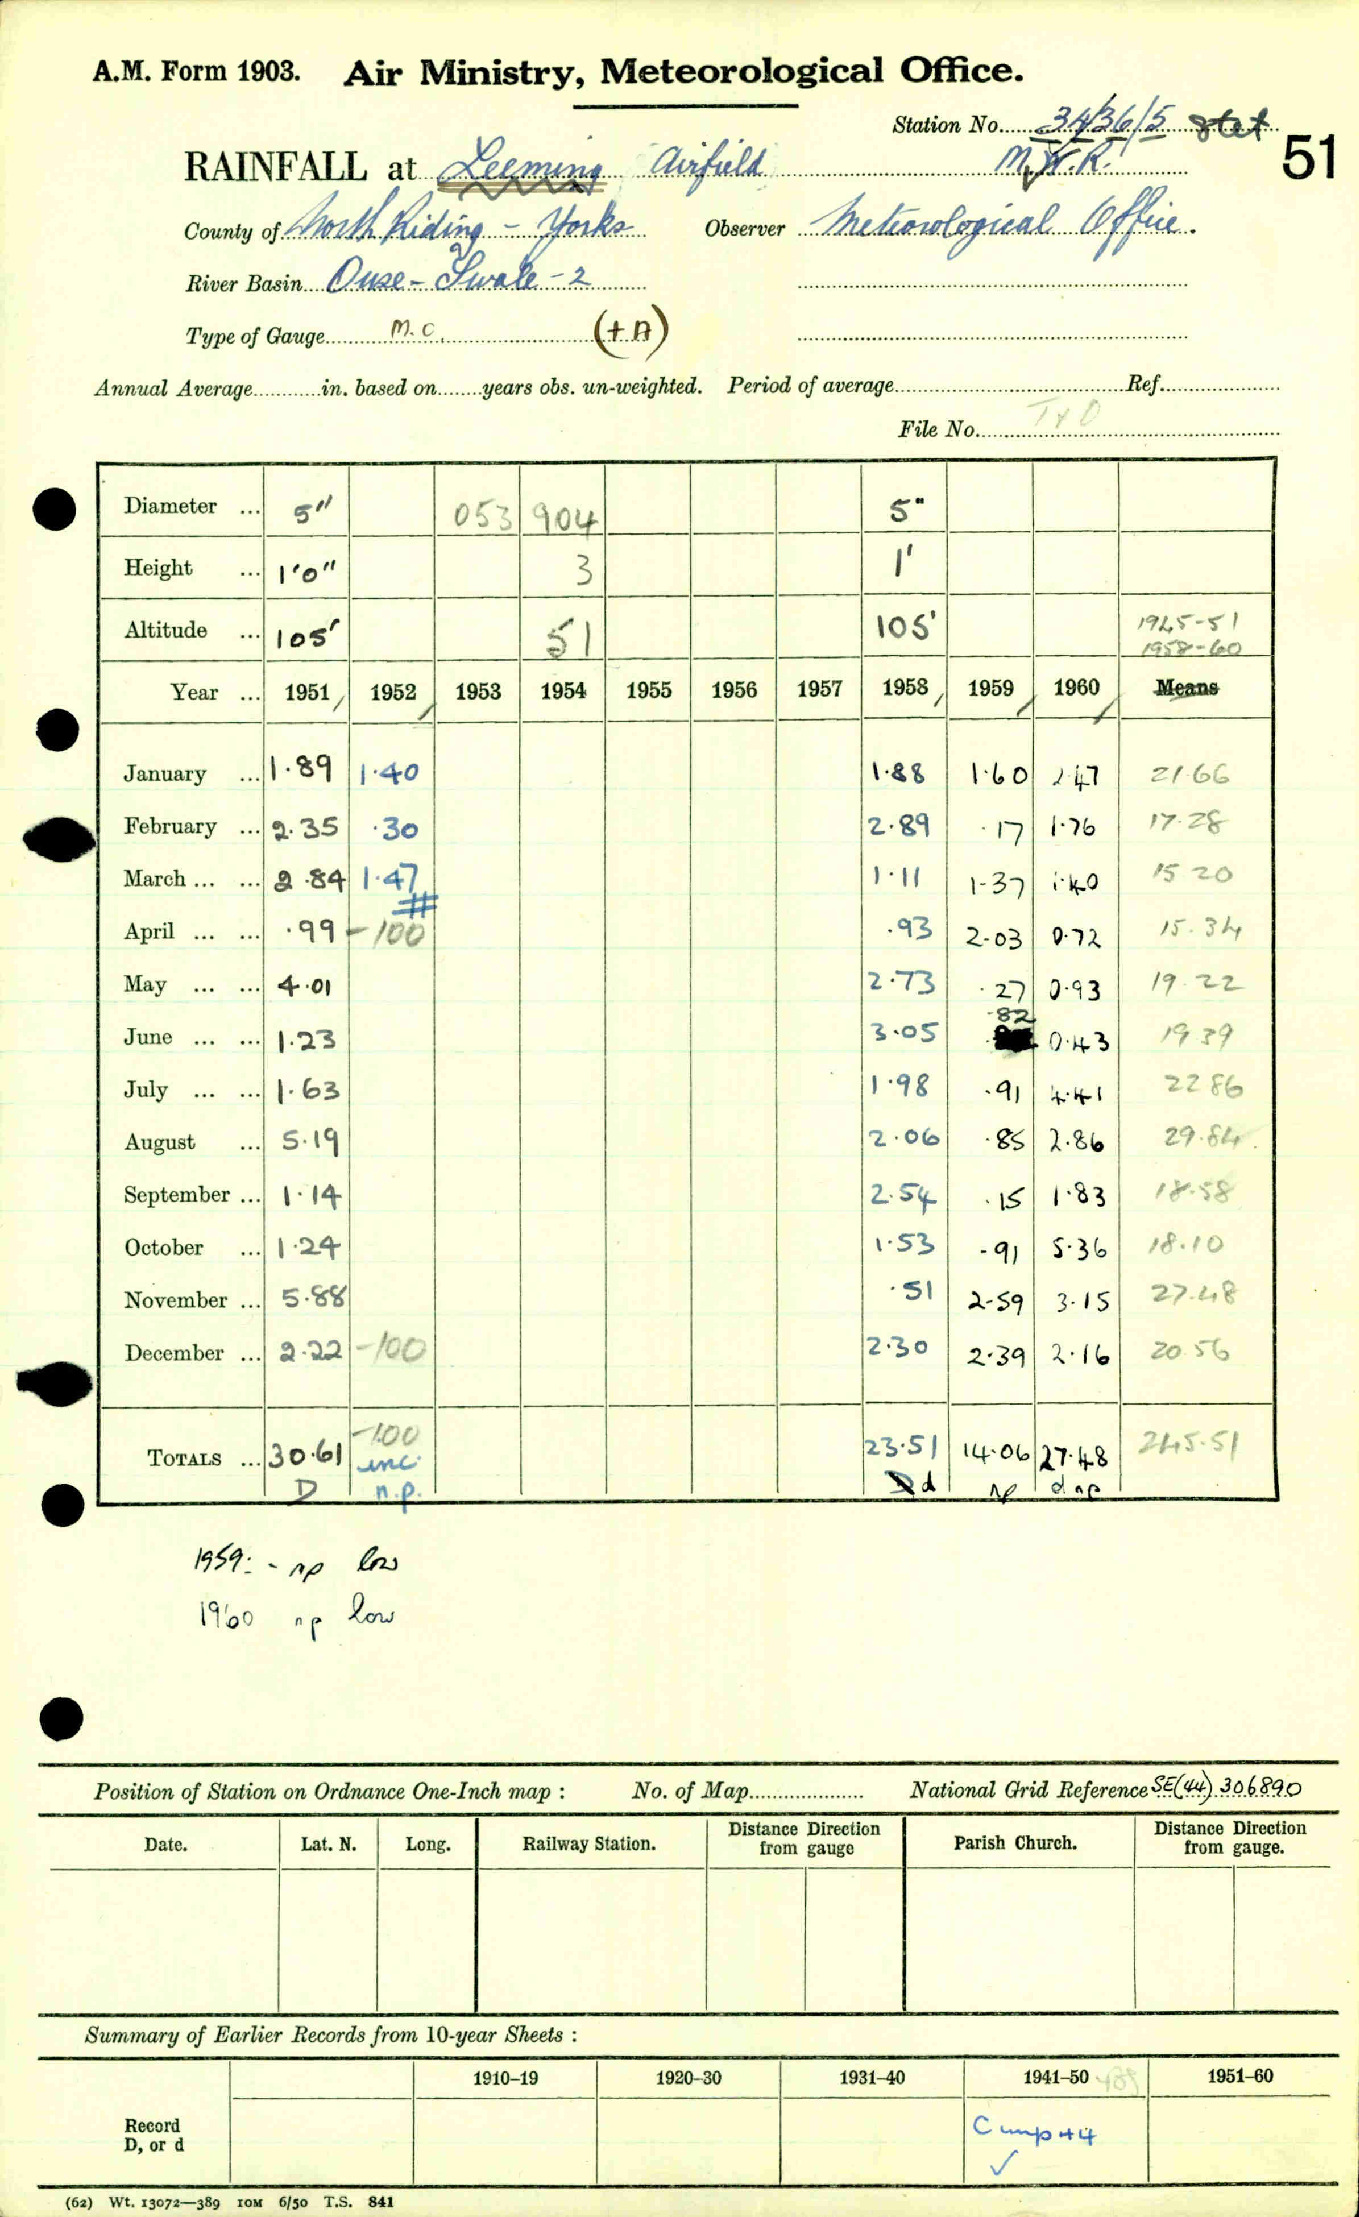 A.M. Form 1903. Air Ministry, Meteorological Office.
Station No. 3436/5 Stet
51
RAINFALL at Leeming Airfield M.W.R.
County of North Riding - Yorks Observer Meteorological Office.
River Basin Ouse - Swale - 2
Type of Gauge M.C. (+ A)
Annual Average in. based on years obs. un-weighted. Period of average Ref.
File No.
Diameter ... 5" 053 904 5"
Height ... 1'0" 3 1'
Altitude ... 105' 51 105' 1945-51
1958-60
Year ... 1951 1952 1953 1954 1955 1956 1957 1958 1959 1960 Means
January ... 1.89 1.40 1.88 1.60 2.47 21.66
February ... 2.35 .30 2.89 .17 1.76 17.28
March ... ... 2.84 1.47 1.11 1.37 1.40 15 20
April ... ... .99 -100 .93 2.03 0.72 15.34
May ... ... 4.01 2.73 .27 0.93 19.22
June ... ... 1.23 3.05 .82 0.43 19 39
July ... ... 1.63 1.98 .91 4.41 22 86
August ... 5.19 2.06 .85 2.86 29.84
September ... 1.14 2.54 .15 1.83 18.58
October ... 1.24 1.53 .91 5.36 18.10
November ... 5.88 .51 2.59 3.15 27.48
December ... 2.22 -100 2.30 2.39 2.16 20 56
TOTALS ... 30.61 -100 inc. 23.51 14.06 27.48 245.51
D n.p. d np d np
1959: - np low
1960 np low
Position of Station on Ordnance One-Inch map : No. of Map National Grid Reference SE(44) 306890
Date. Lat. N. Long. Railway Station. Distance from Direction gauge Parish Church. Distance from Direction gauge.
Summary of Earlier Records from 10-year Sheets :
1910-19 1920-30 1931-40 1941-50 1951-60
Record
D, or d
(62) Wt. 13072—389 10M 6/50 T.S. 841